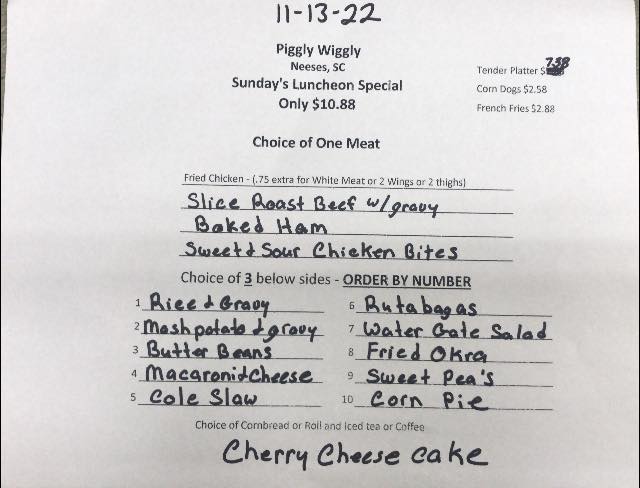 11-13-22
Piggly Wiggly
Neeses, SC
Sunday's Luncheon Special
Only $10.88
Tender Platter $7.38
Corn Dogs $2.58
French Fries $2.88
Choice of One Meat
Fried Chicken - (.75 extra for White Meat or 2 Wings or 2 thighs)
Slice Roast Beef w/gravy
Baked Ham
Sweet & Sour Chicken Bites
Choice of 3 below sides - ORDER BY NUMBER
1 Rice & Gravy
2 Mashpotato & gravy
3 Butter Beans
4 Macaroni & Cheese
5 Cole Slaw
6 Rutabagas
7 Water Gate Salad
8 Fried Okra
9 Sweet Pea's
10 Corn Pie
Choice of Cornbread or Roll and Iced tea or Coffee
Cherry Cheese cake